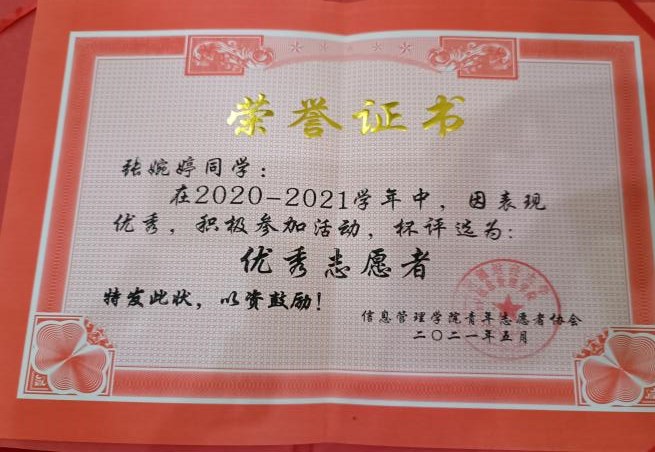 荣誉证书
张婉婷同学：
在2020-2021学年中，因表现
优秀，积极参加活动，杯评选为：
优秀志愿者
特发此状，以资鼓励！
信息管理学院青年志愿者协会
二〇二一年五月